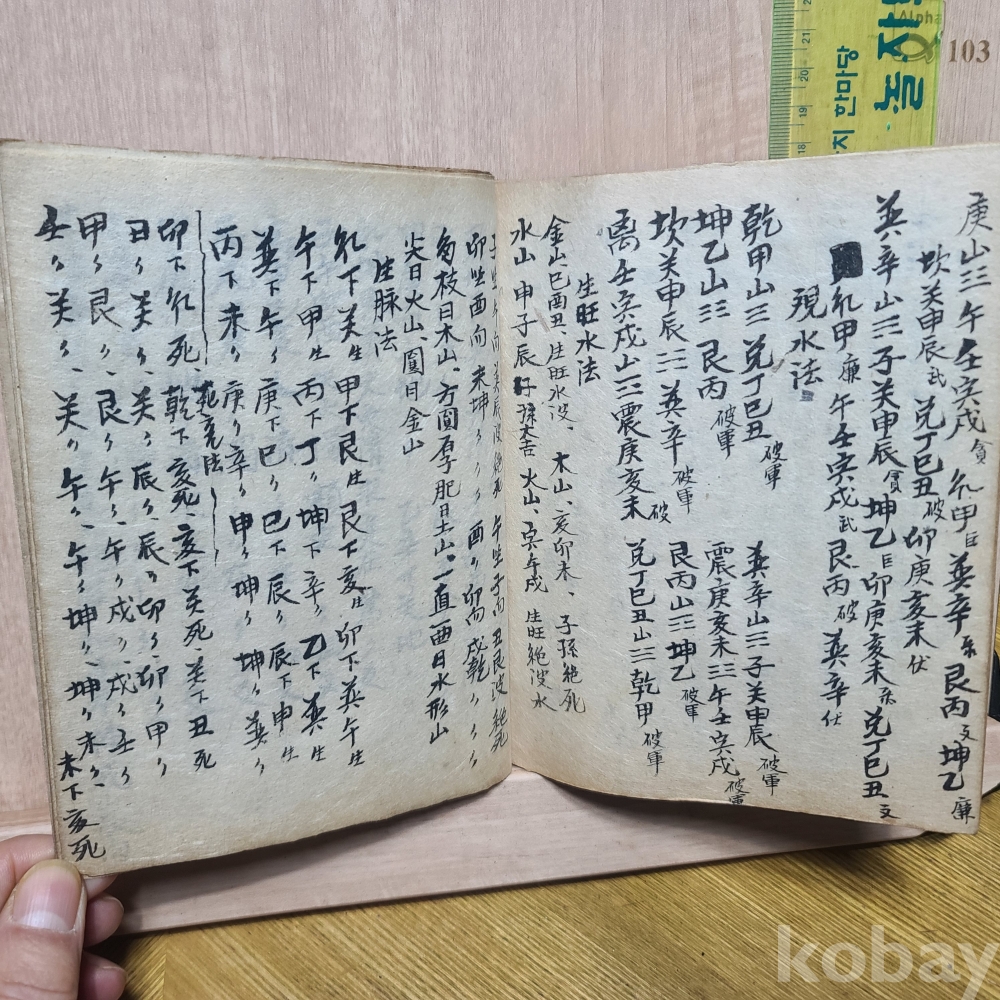 庚山三 午壬寅戌 貪 乾甲 巨 巽辛 祿 艮丙 文 坤乙 廉
坎癸申辰 武 兌丁巳丑 破 卯庚亥未 伏
巽辛山三 子癸申辰 貪 坤乙 巨 卯庚亥未 祿 兌丁巳丑 文
乾甲 廉 午壬寅戌 武 艮丙 破 巽辛 伏
現水法
乾甲山三 兌丁巳丑 破軍 巽辛山三 子癸申辰 破軍
坤乙山三 艮丙 破軍 震庚亥未三 午壬寅戌 破軍
坎癸申辰三 巽辛 破軍 艮丙山三 坤乙 破軍
离壬寅戌山三 震庚亥未 破 兌丁巳丑山三 乾甲 破軍
生旺水法
金山巳酉丑、生旺水没、木山、亥卯未、子孫絶死
水山 申子辰 子孫大吉 火山、寅午戌 生旺絶没水
午坐子向 丑艮没絶死
卯坐酉向 未坤〃〃 酉〃卯向戌乾〃〃〃
曰木山、方圓厚肥曰土山、一直一酉曰水形山
尖曰火山、圓曰金山
生脉法
乾下癸生 甲下艮生 艮下亥生 卯下巽午生
午下甲生 丙下丁〃 坤下辛〃 乙下巽生
巽下午〃 庚下巳〃 巳下辰〃 辰下申生
丙下未〃 庚〃辛〃 申〃坤〃 坤〃巽〃
卯下乾死、乾下亥死、亥下癸死、癸下丑死
甲〃艮〃、艮〃午〃、午〃戌〃、戌〃壬〃
壬〃癸〃、癸〃午〃、午〃坤〃、坤〃未〃、未下亥死
놀자
한마당
Alpha
103
18
19
20
21
kobay